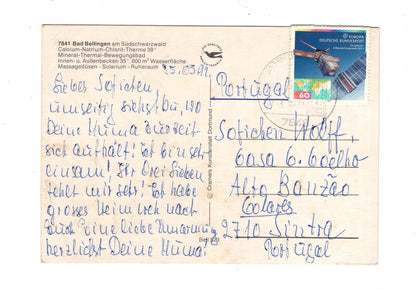 7841 Bad Bellingen am Südschwarzwald
Calcium-Natrium-Chlorit-Therme 39°
Mineral-Thermal-Bewegungsbad
Innen- u. Außenbecken 35°, 600 m² Wasserfläche
Massagedüsen - Solarium - Ruheraum
Lieber Sofichen
umseitig siehst Du, wo
Deine Muma zur Zeit
sich aufhält! Ich bin sehr
einsam! Ihr drei Lieben
fehlt mir sehr! Ich habe
grosses Heimweh nach
Euch Eine liebe Umarmung
herzlichst Deine Muma.
© Cramers Kunstanstalt Dortmund
Bell
EUROPA
DEUTSCHE BUNDESPOST
60
Portugal
Sofichen Wolff,
Casa G. Coelho
Alto Banzão
Colares
2710 Sintra
Portugal